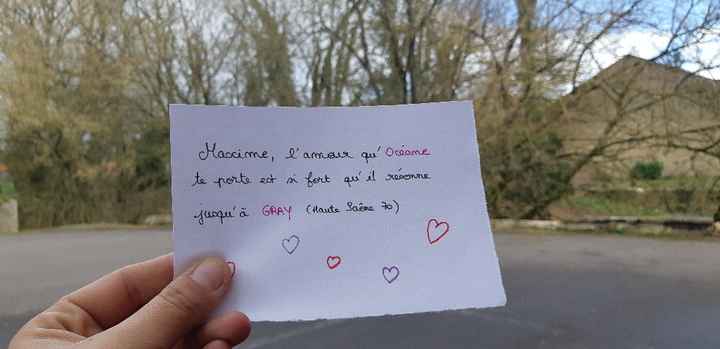 Maxime, l'amour qu'Océane
te porte est si fort qu'il résonne
jusqu'à GRAY (Haute Saône 70)